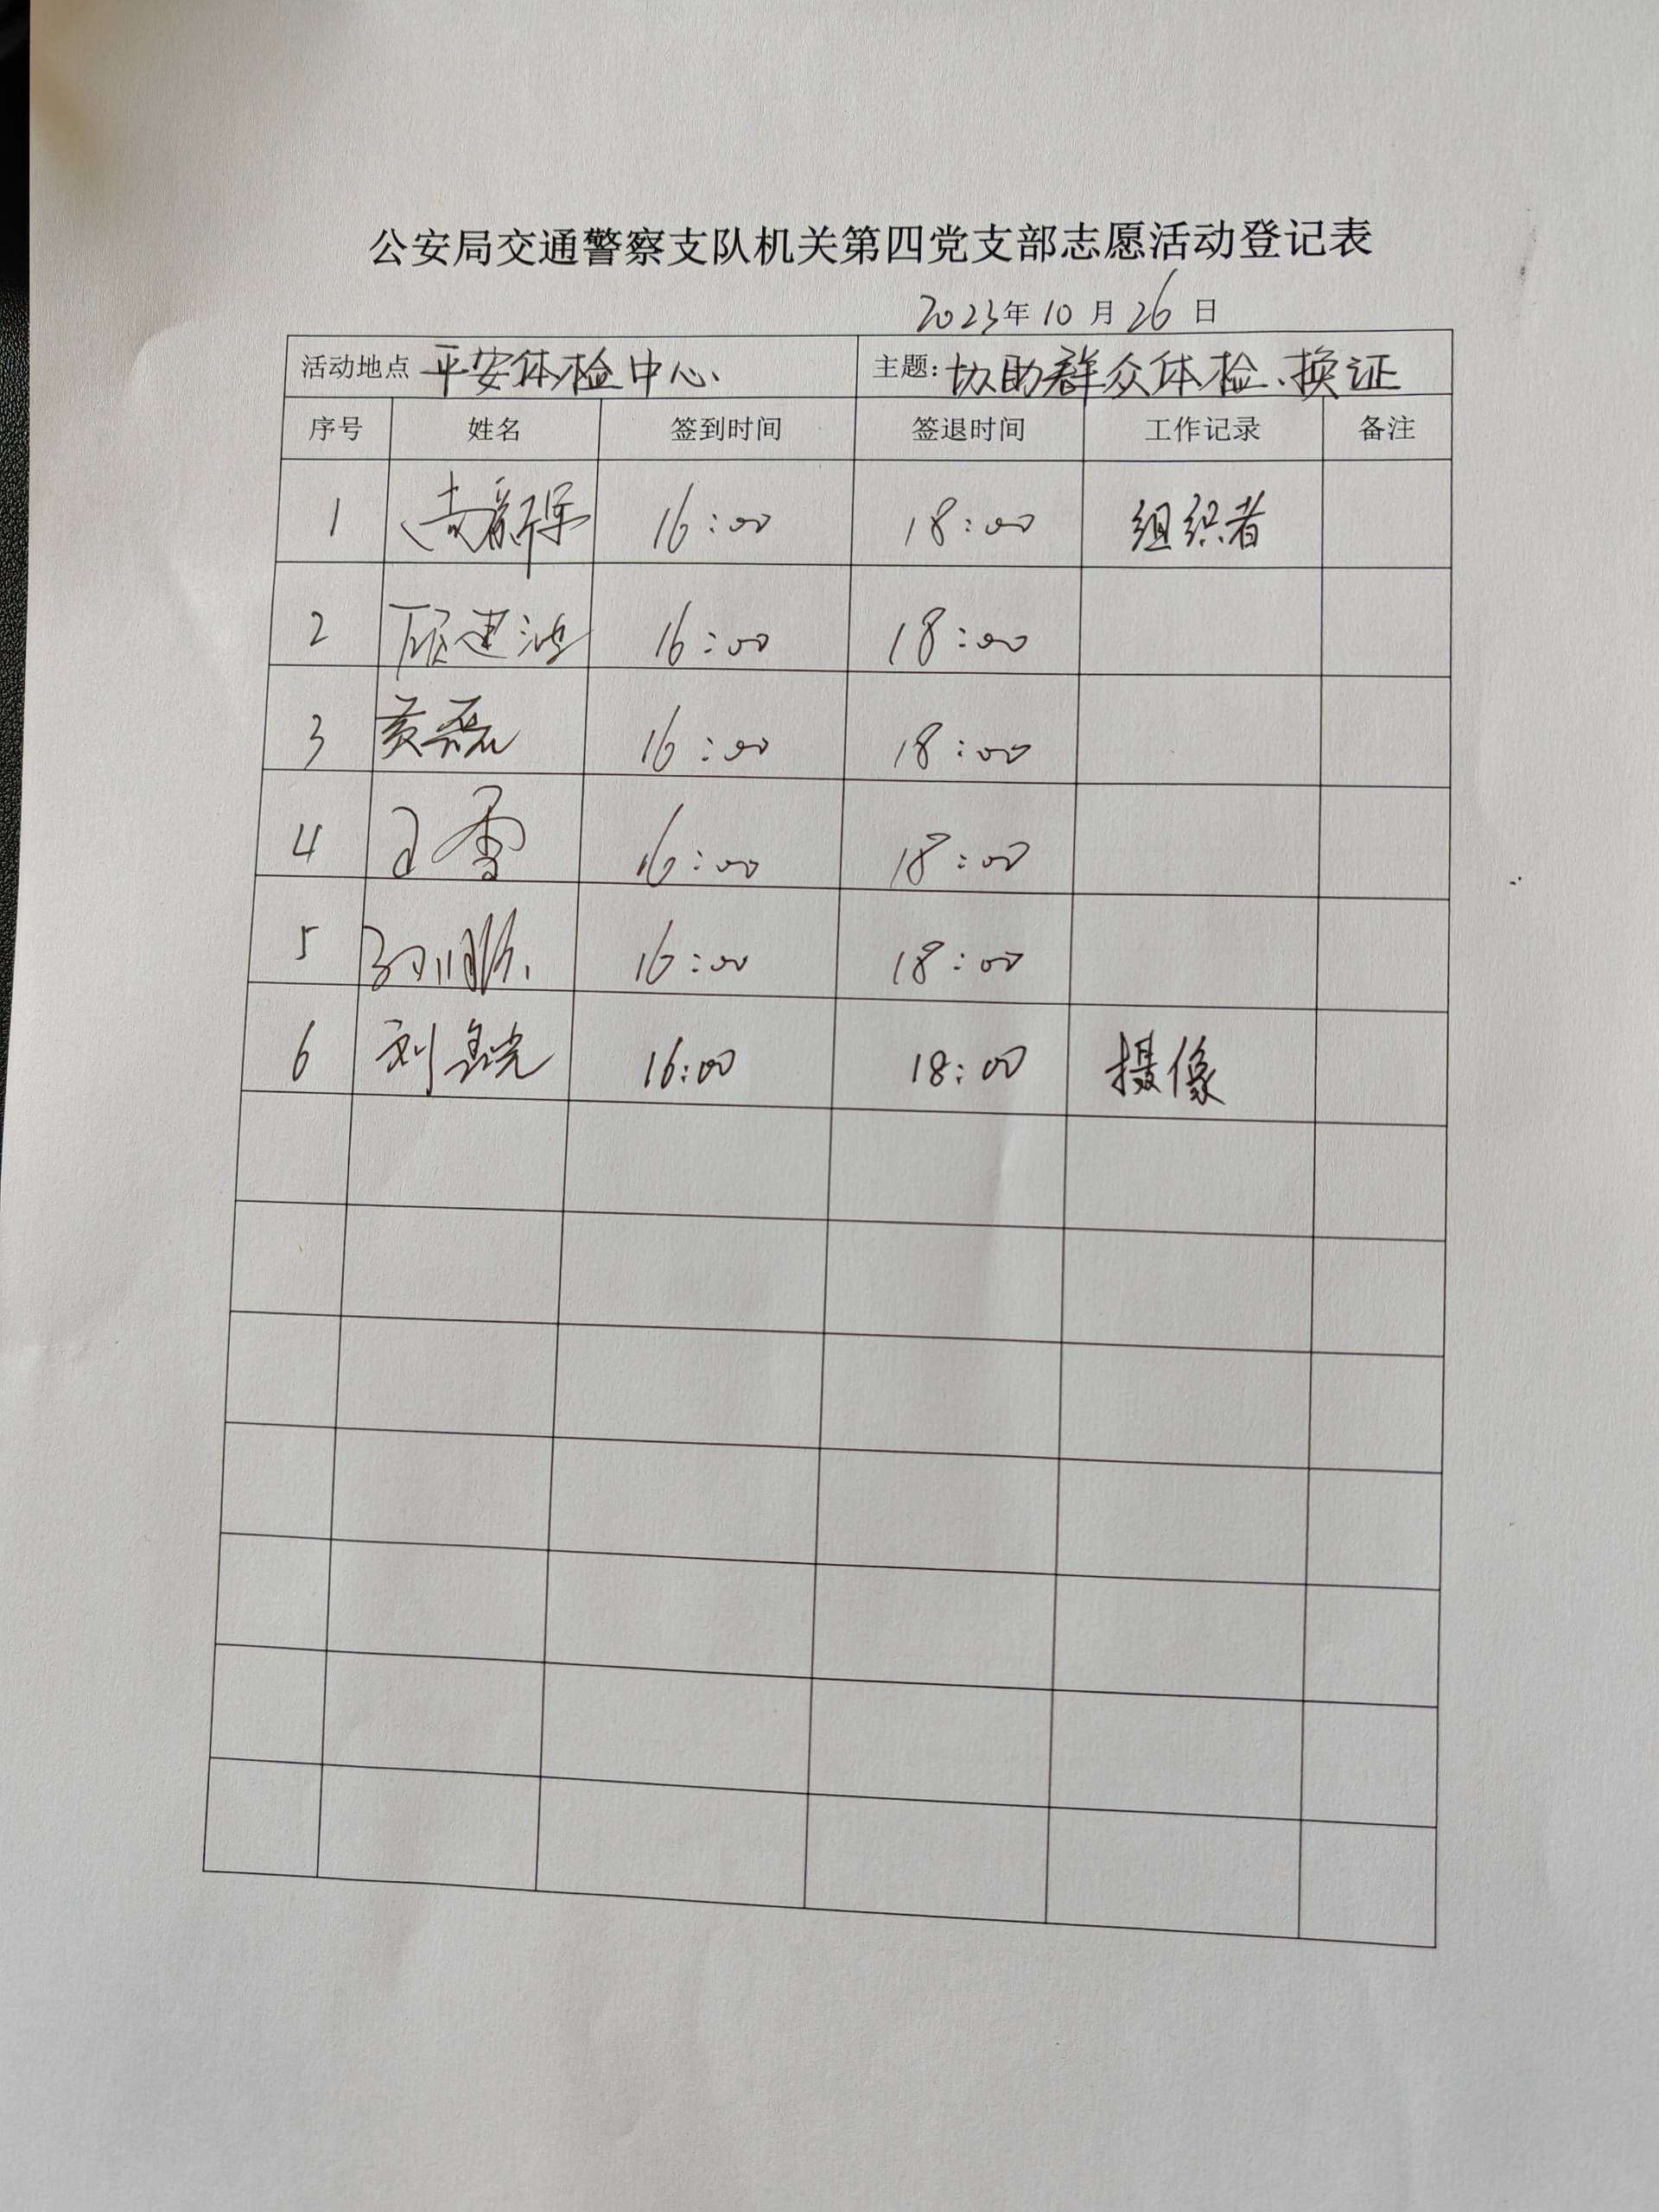 公安局交通警察支队机关第四党支部志愿活动登记表
2023年10月26日
活动地点 平安体检中心 主题: 协助群众体检、换证
序号 姓名 签到时间 签退时间 工作记录 备注
1 16:00 18:00 组织者
2 顾建波 16:00 18:00
3 黄磊 16:00 18:00
4 王雪 16:00 18:00
5 16:00 18:00
6 刘 16:00 18:00 摄像